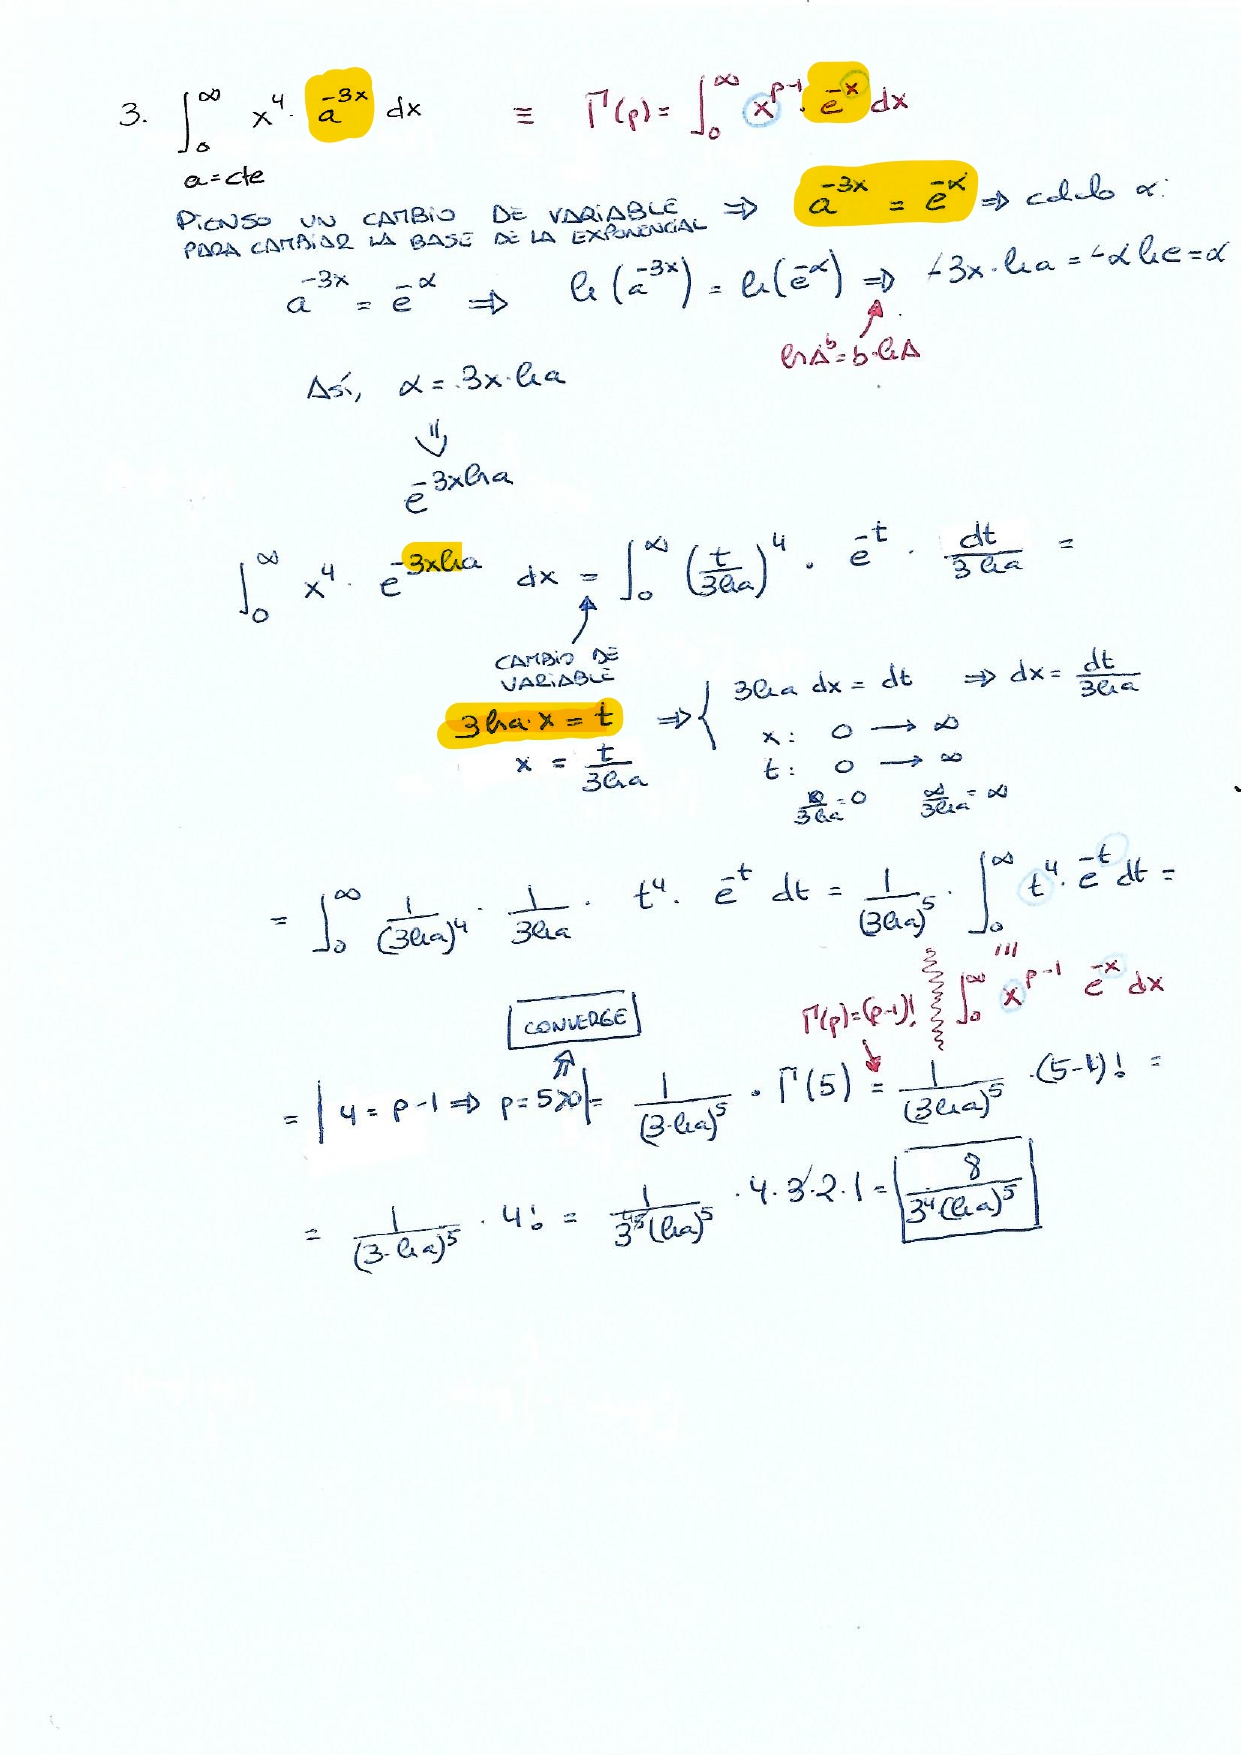 3. ∫₀^∞ x⁴ · a^(-3x) dx ≡ Γ(p) = ∫₀^∞ x^(p-1) · e^(-x) dx
a = cte
PIENSO UN CAMBIO DE VARIABLE ⇒ a^(-3x) = e^(-α) ⇒ calculo α:
PARA CAMBIAR LA BASE DE LA EXPONENCIAL
a^(-3x) = e^(-α) ⇒ ln(a^(-3x)) = ln(e^(-α)) ⇒ -3x · ln a = -α ln e = α
ln A^b = b · ln A
Así, α = 3x · ln a
⇓
e^(-3x ln a)
∫₀^∞ x⁴ · e^(-3x ln a) dx = ∫₀^∞ (t/(3 ln a))⁴ · e^(-t) · dt/(3 ln a) =
CAMBIO DE
VARIABLE
3 ln a · x = t ⇒ { 3 ln a dx = dt ⇒ dx = dt/(3 ln a)
x: 0 → ∞
x = t/(3 ln a)
t: 0 → ∞
0/(3 ln a) = 0 ∞/(3 ln a) = ∞
= ∫₀^∞ 1/(3 ln a)⁴ · 1/(3 ln a) · t⁴ · e^(-t) dt = 1/(3 ln a)⁵ · ∫₀^∞ t⁴ · e^(-t) dt =
CONVERGE
Γ(p) = (p-1)! ∫₀^∞ x^(p-1) e^(-x) dx
= | 4 = p-1 ⇒ p = 5 > 0 | = 1/(3 · ln a)⁵ · Γ(5) = 1/(3 ln a)⁵ · (5-1)! =
= 1/(3 · ln a)⁵ · 4! = 1/(3⁵ (ln a)⁵) · 4 · 3 · 2 · 1 = 8/(3⁴ (ln a)⁵)